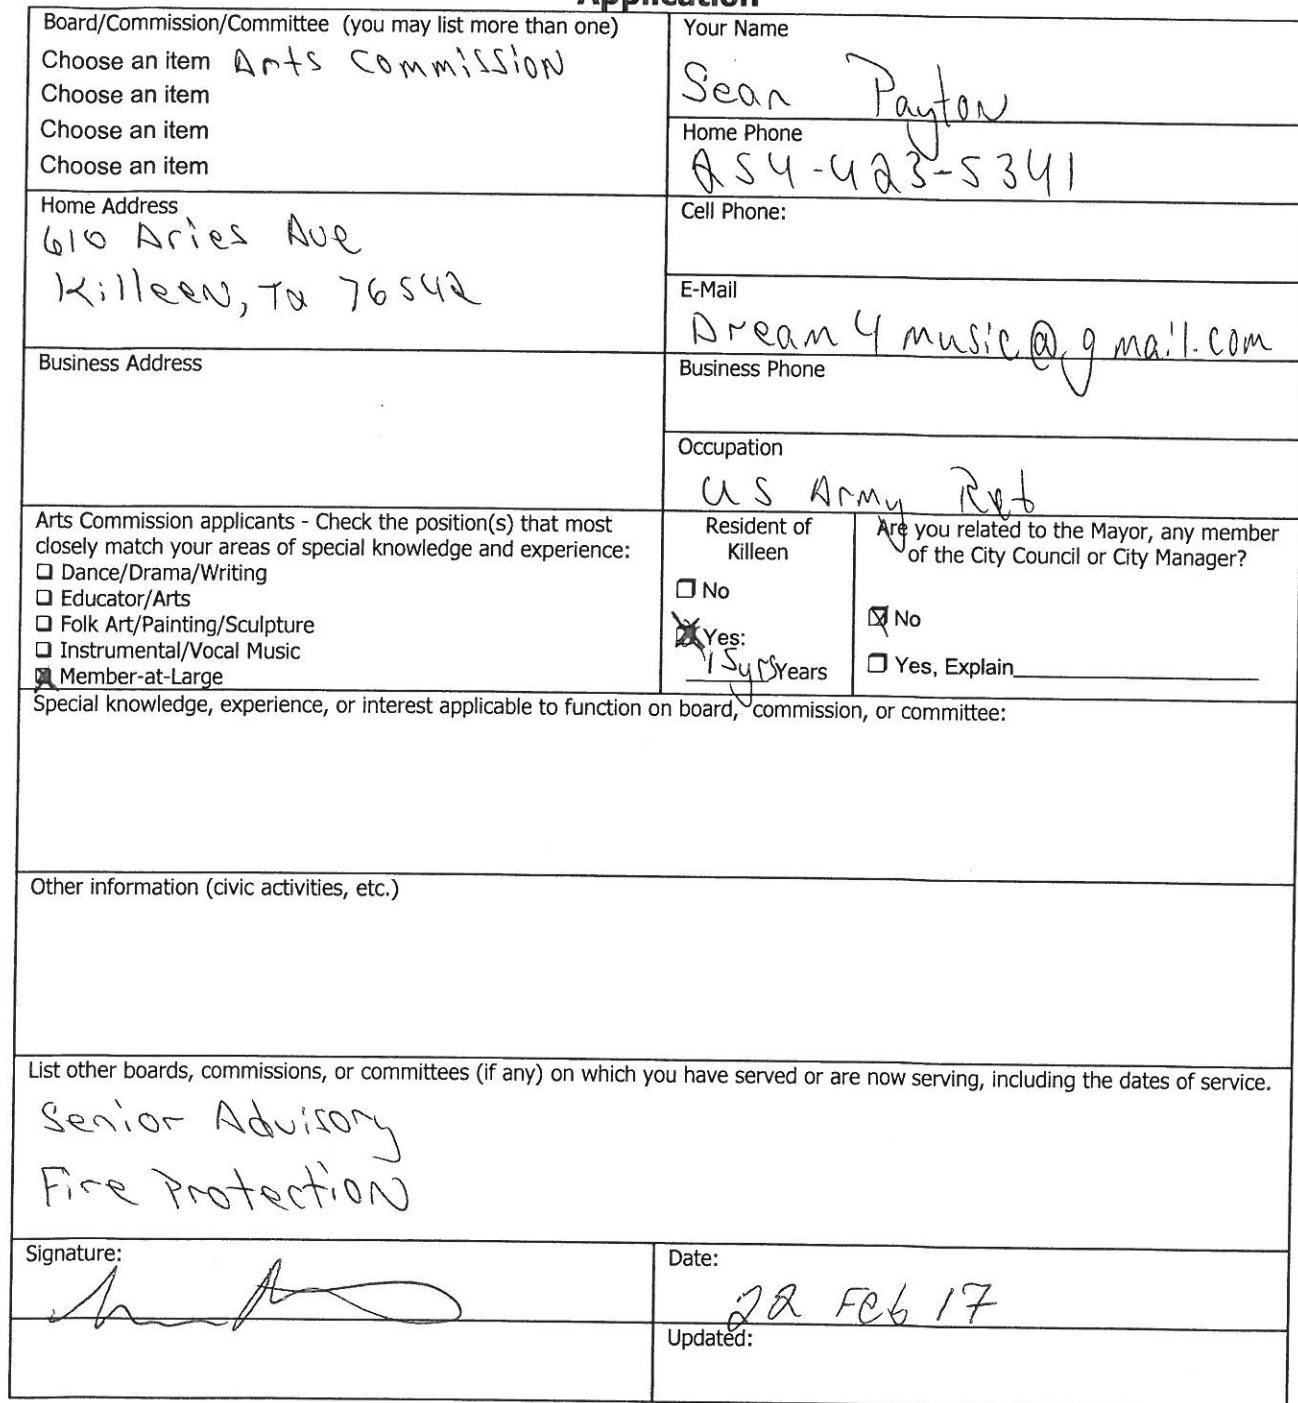 Application
Board/Commission/Committee (you may list more than one)
Choose an item Arts Commission
Choose an item
Choose an item
Choose an item
Your Name
Sean Payton
Home Phone
254-423-5341
Home Address
610 Aries Ave
Killeen, Tx 76542
Cell Phone:
E-Mail
Dream4music@gmail.com
Business Address
Business Phone
Occupation
US Army Ret
Arts Commission applicants - Check the position(s) that most
closely match your areas of special knowledge and experience:
❑ Dance/Drama/Writing
❑ Educator/Arts
❑ Folk Art/Painting/Sculpture
❑ Instrumental/Vocal Music
☒ Member-at-Large
Resident of
Killeen
☐ No
☒ Yes:
15yrs Years
Are you related to the Mayor, any member
of the City Council or City Manager?
☒ No
☐ Yes, Explain
Special knowledge, experience, or interest applicable to function on board, commission, or committee:
Other information (civic activities, etc.)
List other boards, commissions, or committees (if any) on which you have served or are now serving, including the dates of service.
Senior Advisory
Fire Protection
Signature:
Date:
22 Feb 17
Updated: